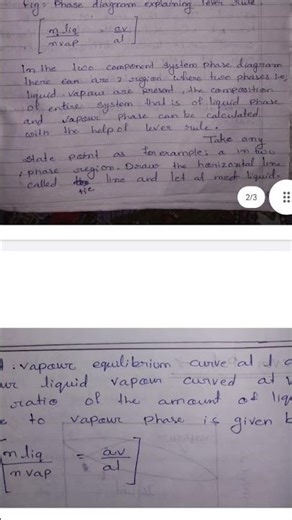 Fig: Phase diagram explaining lever rule.
[ m liq / n vap = av / al ]
In the two component system phase diagram
there can are 2 region where two phases is,
liquid vapour are present, the composition
of entire system that is of liquid phase
and vapour phase can be calculated
with the help of lever rule.
Take any
state point as for example: a in two
phase region. Draw the horizontal line
called tie line and let at meet liquid-
2/3
vapour equilibrium curve at l a
liquid vapour curved at v
ratio of the amount of liq
to vapour phase is given b
[ m liq / n vap = av / al ]